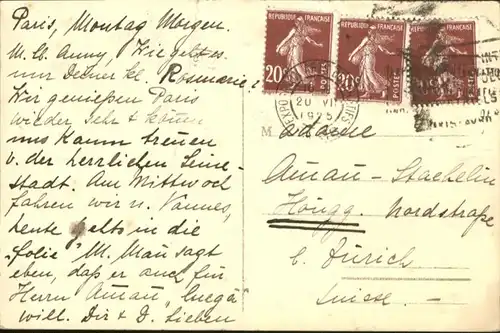 Paris, Montag Morgen.
M. lb. Anny, Wie geht es
nur Deiner kl. Rosmarie?
Wir genießen Paris
wieder sehr & können
uns kaum trennen
v. der herrlichen Seine-
stadt. Am Mittwoch
fahren wir n. Vannes,
heute gehts in die
"folie" M. Mau sagt
eben, daß er auch für
Herrn Amau
will. Dir & D. Lieben
REPUBLIQUE FRANÇAISE
20c POSTES
REPUBLIQUE FRANÇAISE
20c POSTES
POSTES
20 VII
1925
Madame
Amau-Staehelin
Höngg. Nordstraße
b. Zürich
Suisse.-